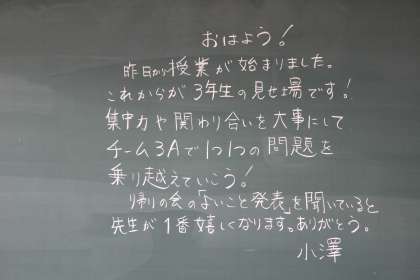 おはよう!
昨日から授業が始まりました。
これからが3年生の見せ場です!
集中力や関わり合いを大事にして
チーム3Aで1つ1つの問題を
乗り越えていこう!
帰りの会の「よいこと発表」を聞いていると
先生が1番嬉しくなります。ありがとう。
小澤